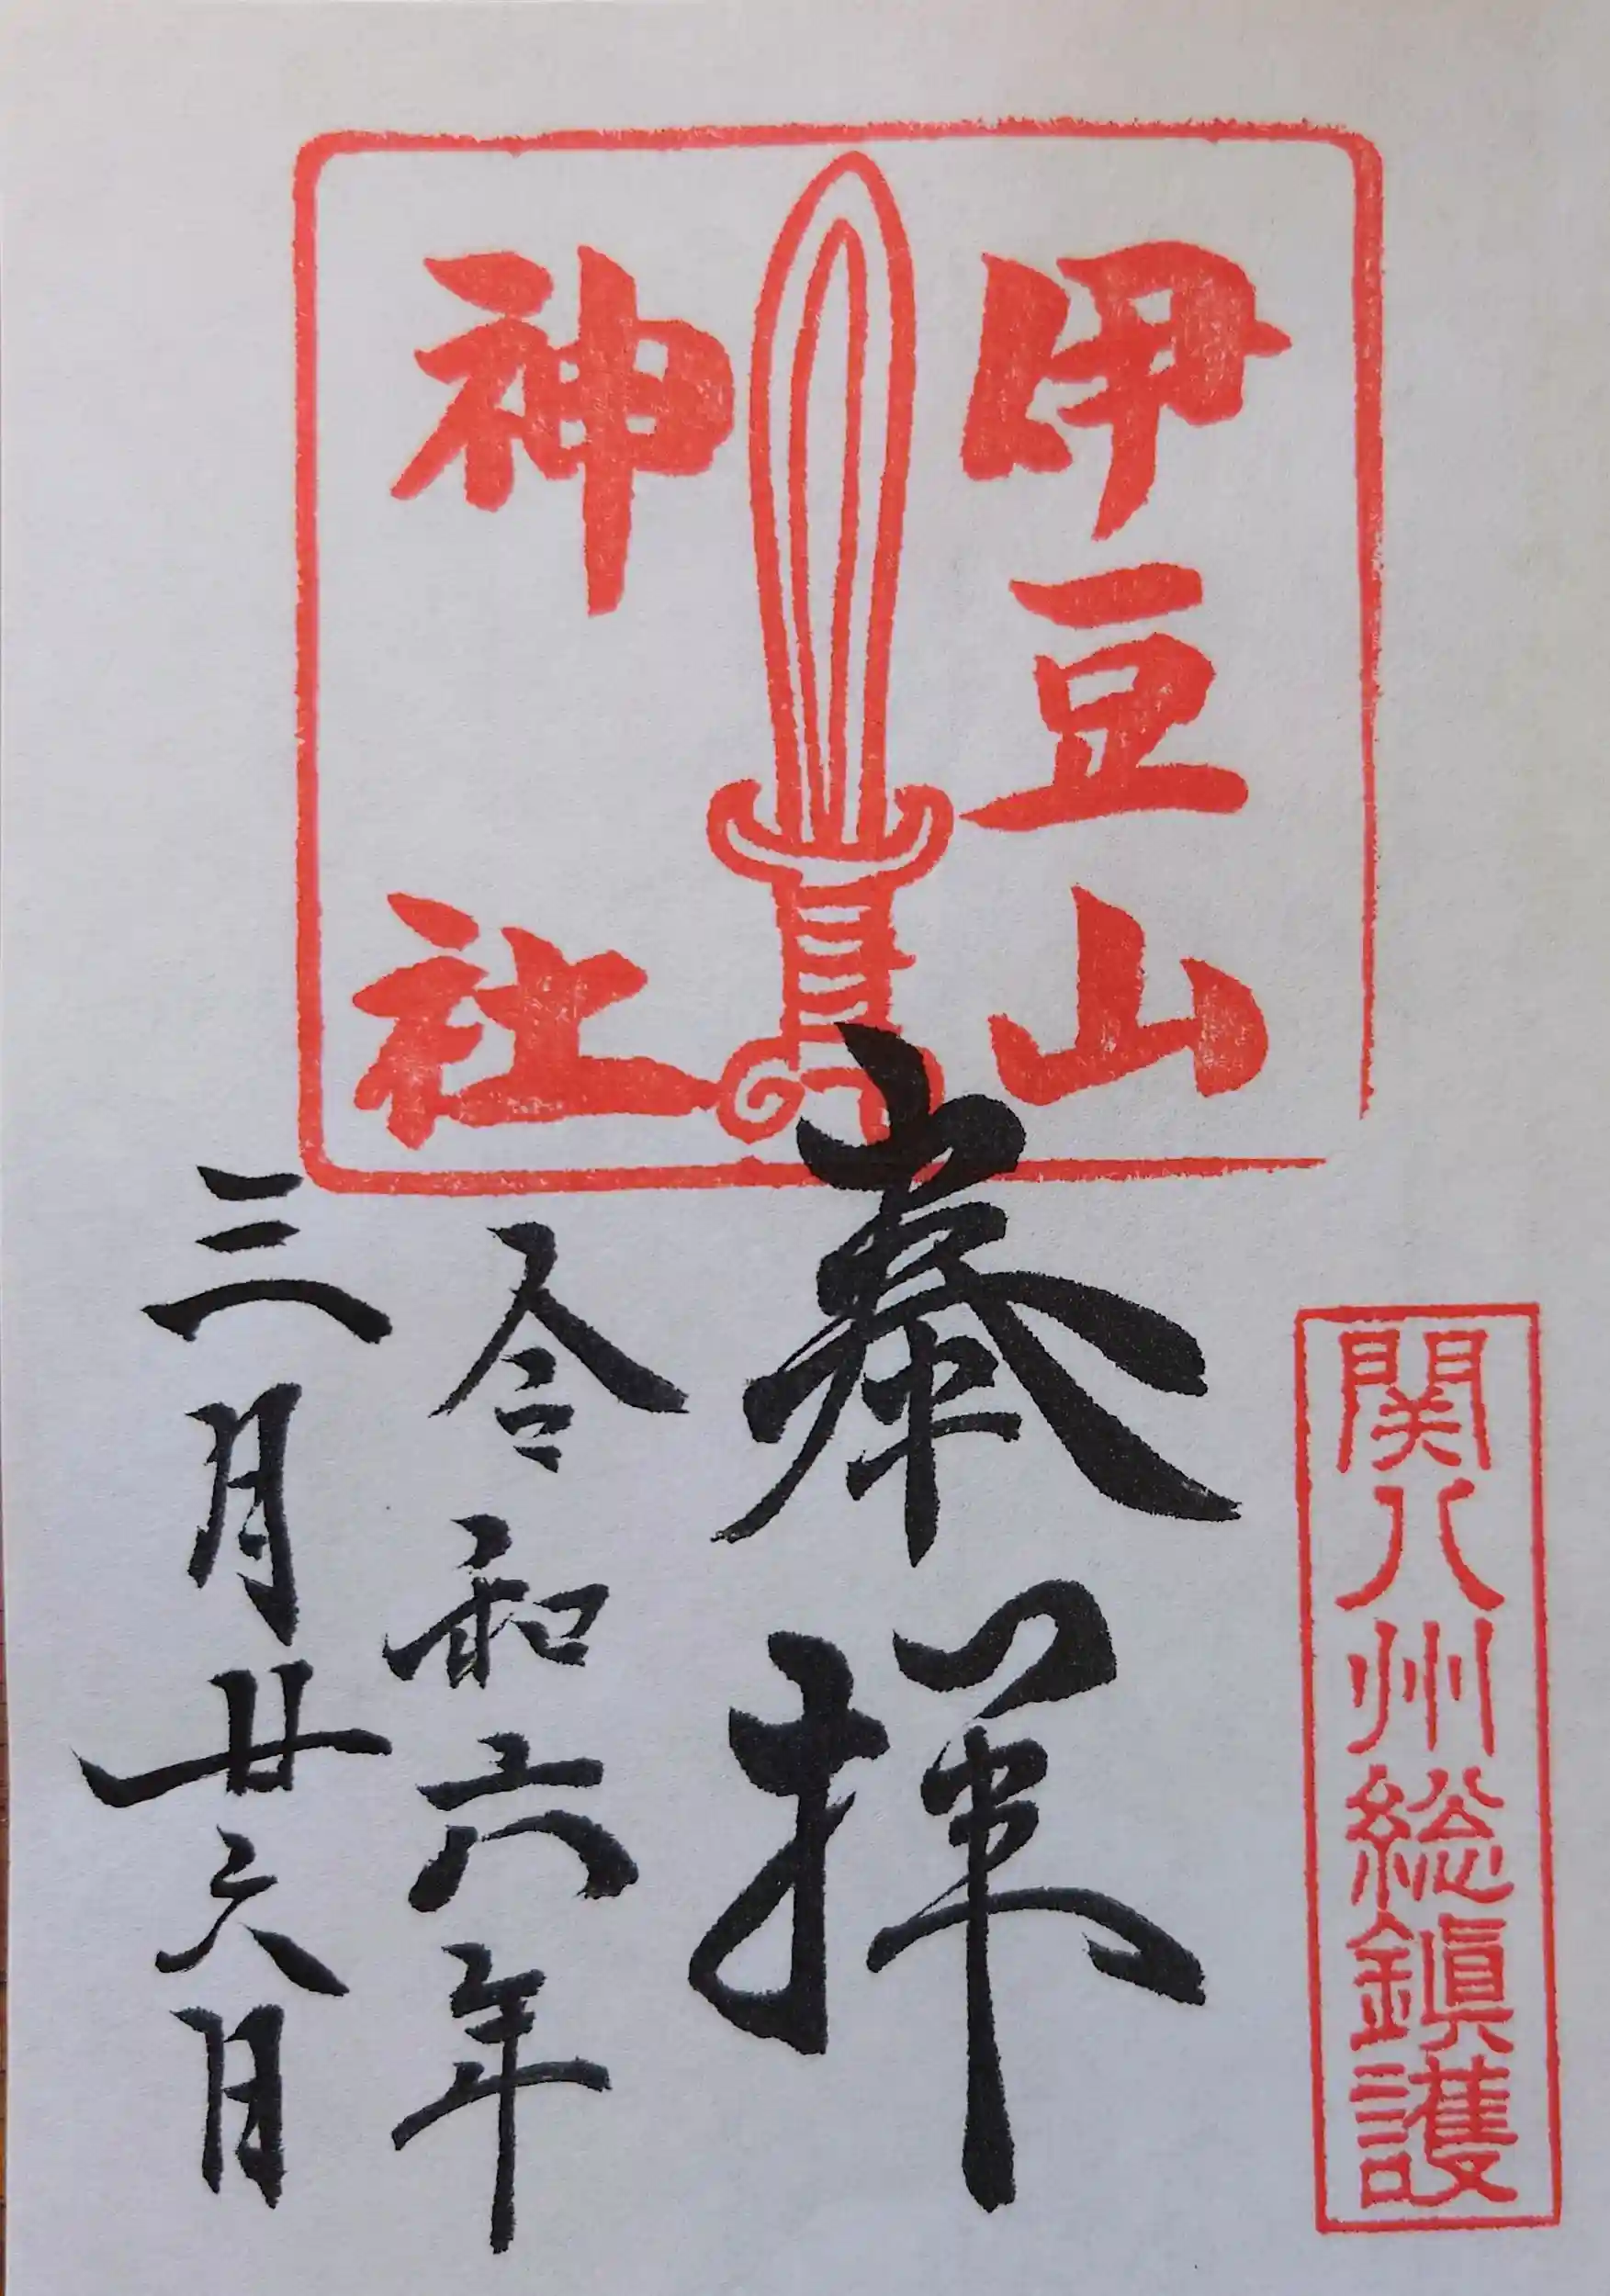 関八州総鎮護
伊豆山
神社
奉拝
令和六年
三月廿六日